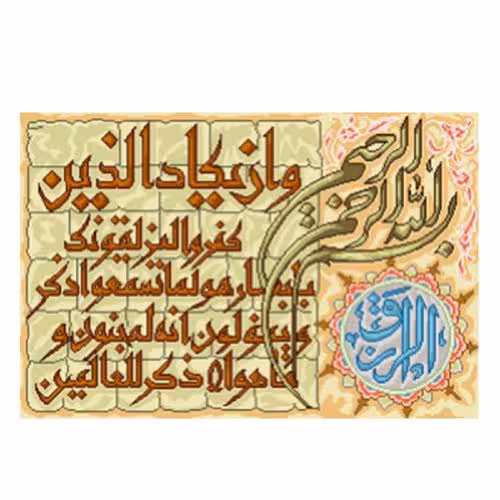 بسم الله الرحمن الرحیم
وان یکاد الذین
کفروا لیزلقونک
بابصارهم لما سمعوا الذکر
و یقولون انه لمجنون و
ما هو الا ذکر للعالمین